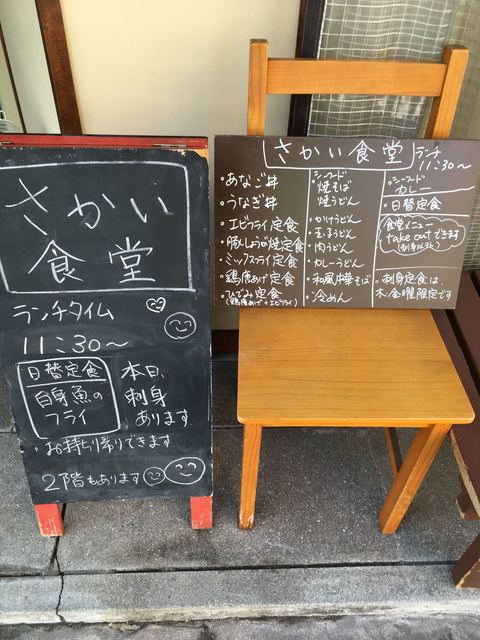 さかい
食堂
ランチタイム
11:30〜
日替定食
白身魚の
フライ
本日、
刺身
あります
・お持ち帰りできます
2階もあります
さかい食堂
ランチ
11:30〜
・あなご丼
・うなぎ丼
・エビフライ定食
・豚しょうが焼定食
・ミックスフライ定食
・鶏唐あげ定食
(鶏唐あげ+エビフライ)
・シーフード
焼そば
焼うどん
・かけうどん
・玉子うどん
・肉うどん
・カレーうどん
・和風中華そば
・冷めん
・シーフード
カレー
・日替定食
食堂メニュー
take outできます
・刺身定食は、
木・金曜限定です